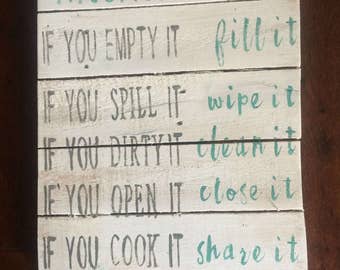 IF YOU EMPTY IT fill it
IF YOU SPILL IT wipe it
IF YOU DIRTY IT clean it
IF YOU OPEN IT close it
IF YOU COOK IT share it